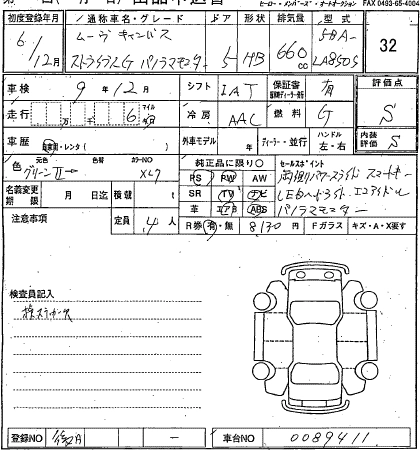 ヒーロー・メンバーズ・オートオークション FAX 0493-65-4004
初度登録年月 通称車名・グレード ドア 形状 排気量 型式
6/12月 ムーヴキャンバス 5BA-
ストライプスG パノラマモニター 5 HB 660cc LA850S 32
車検 9年12月 シフト IAT 保証書 有 評価点
走行 万 千 6 マイル 冷房 AAC 燃料 G S
車歴 自家用・レンタ 外車モデル 年 ディーラー・並行 ハンドル 左・右 内装評価 S
色 元色 色替 カラーNO 純正品に限り〇 セールスポイント
グリーンII XL7 PS PW AW 両側パワースライド スマートキー
名義変更期限 月 日 積載 t SR TV ナビ LEDヘッドライト エコアイドル
革 エアB ABS パノラマモニター
注意事項 定員 4人 R券 有・無 8130円 Fガラス キズ・A・X要す
検査員記入
登録NO 車台NO 0089411